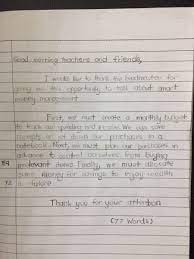 Good morning teachers and friends,
I would like to thank the headmaster for
giving me this opportunity to talk about smart
money management.
First, we must create a monthly budget
to track our spending and income. We can save
receipts or jot down our purchases in a
notebook. Next, we must plan our purchases in
advance to control ourselves from buying
54 irrelevant items. Finally, we must allocate
some money for savings to enjoy wealth
72 in future.
Thank you for your attention.
(77 Words)